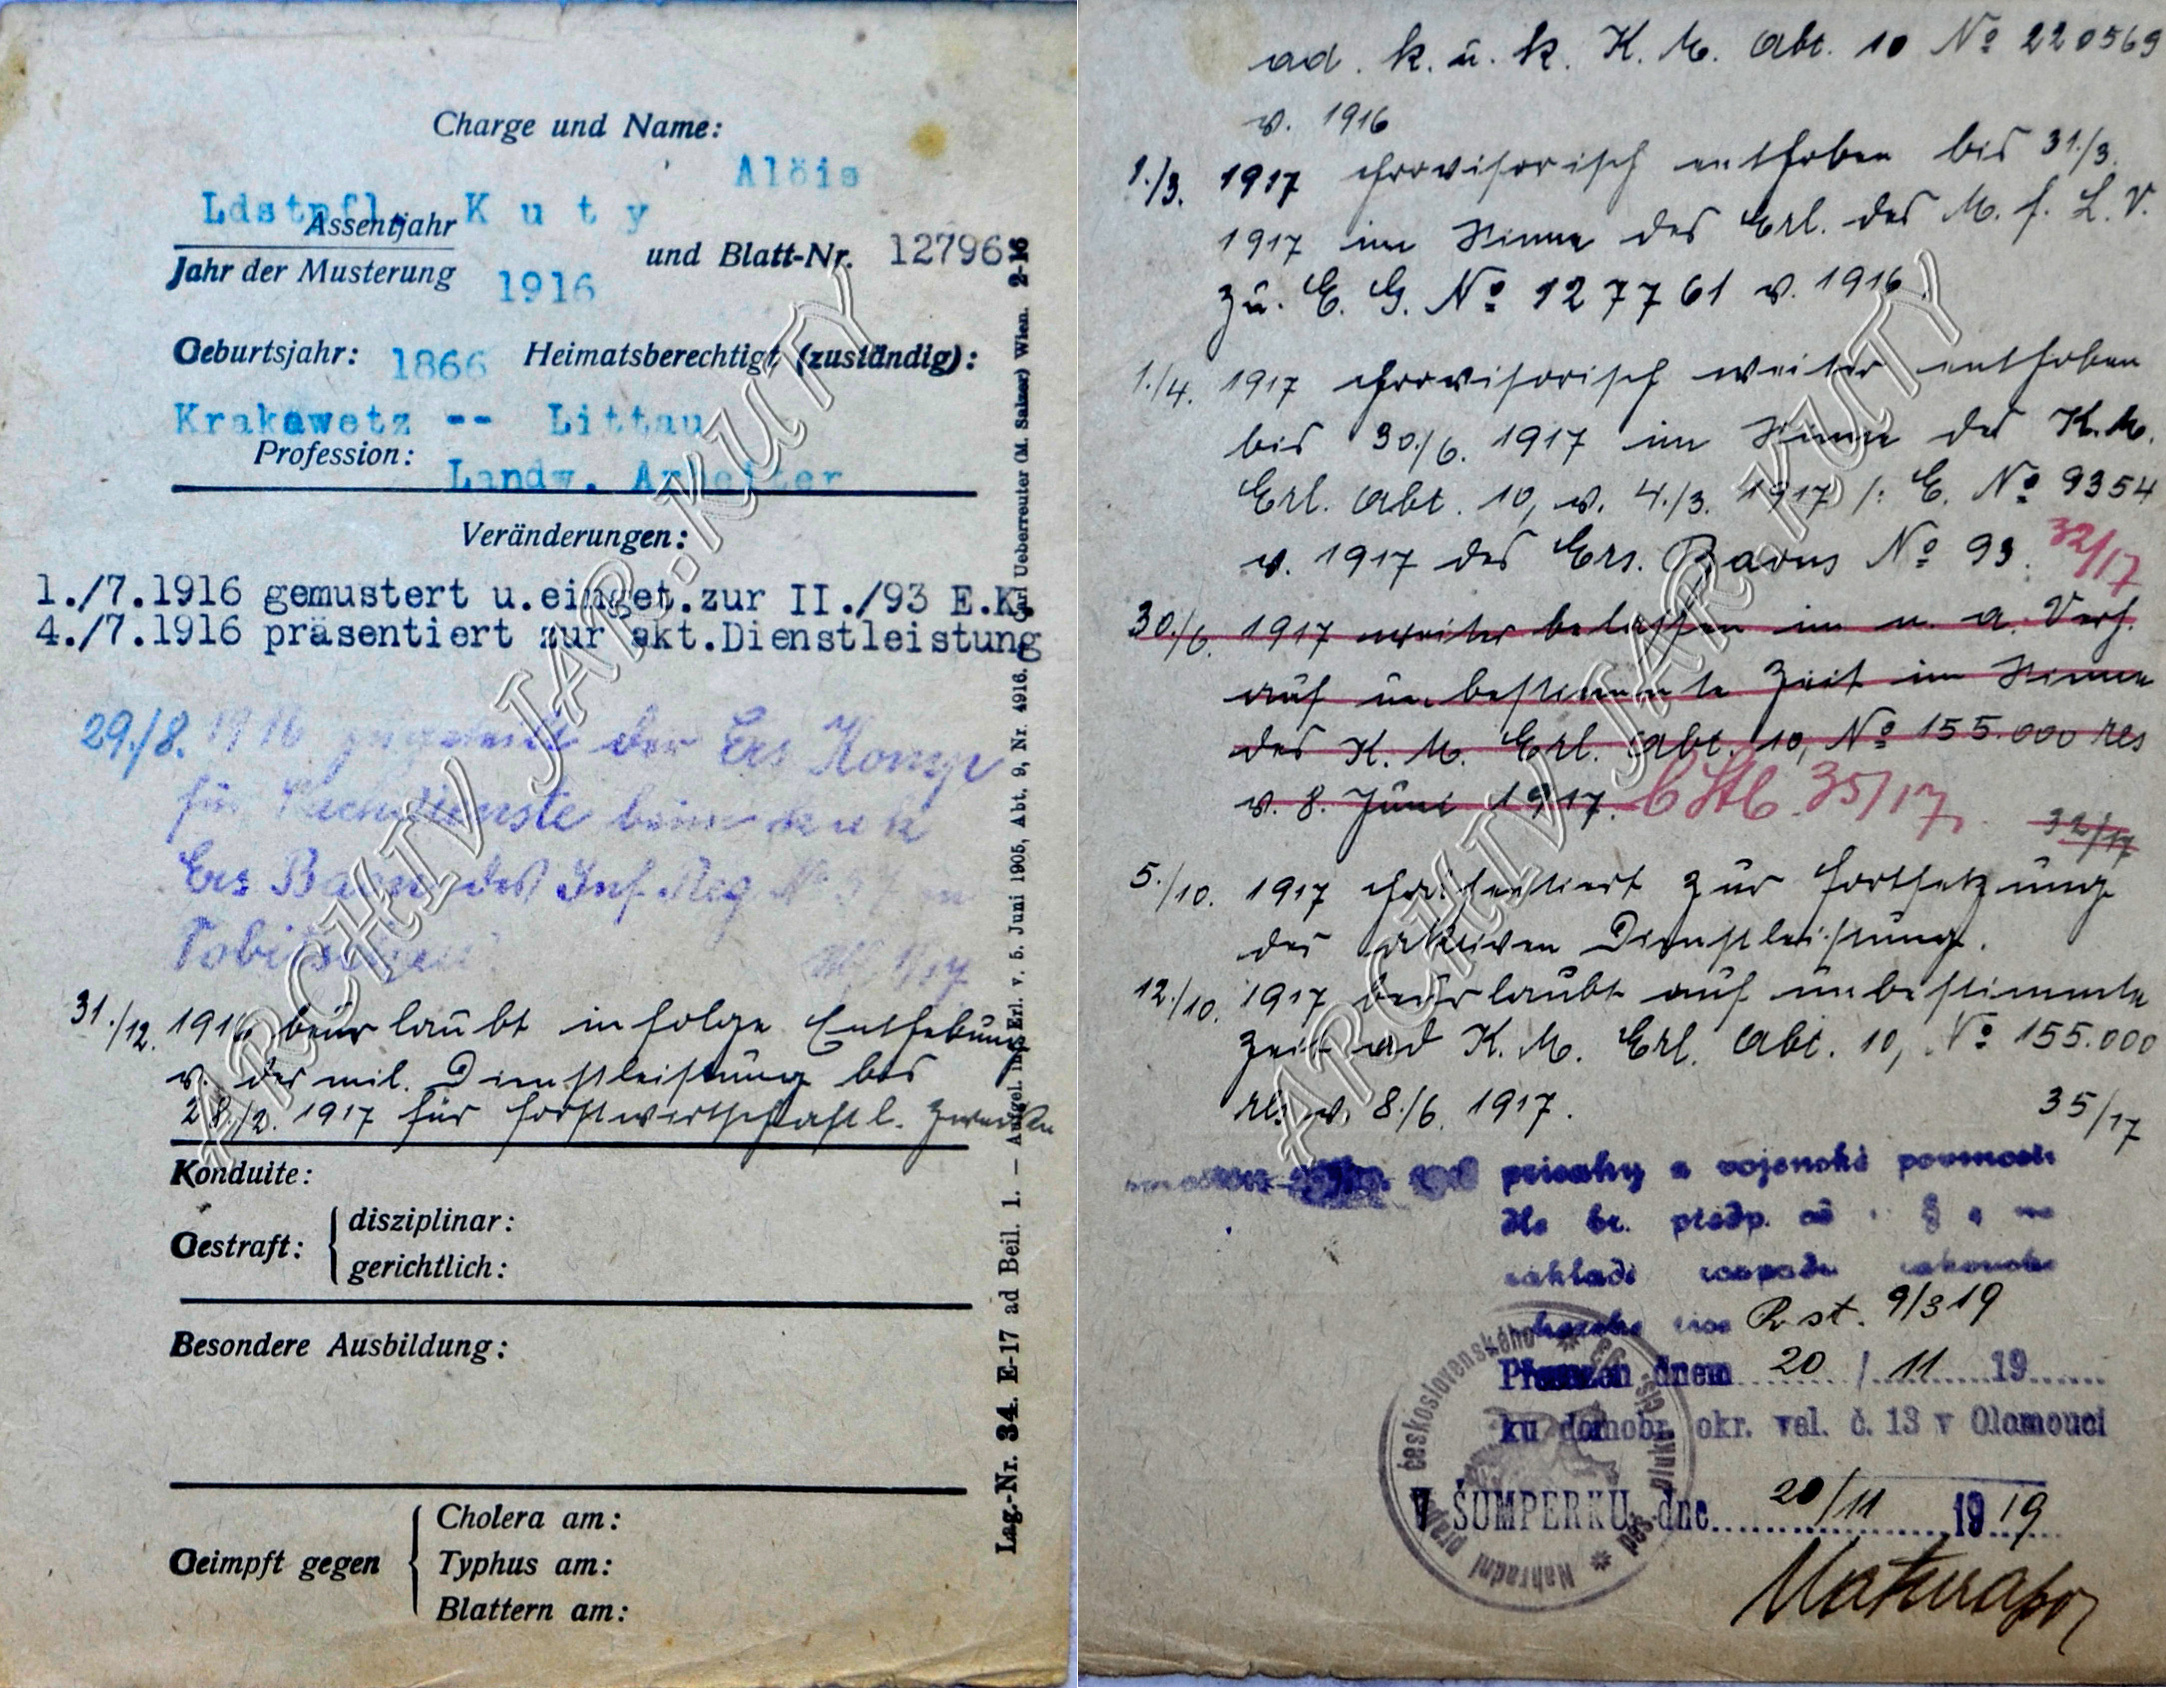 Charge und Name:
Alöis
Ldstpfl. Kuty
Assentjahr
Jahr der Musterung 1916 und Blatt-Nr. 12796
Geburtsjahr: 1866 Heimatsberechtigt (zuständig):
Krakawetz -- Littau
Profession: Landw. Arbeiter
Veränderungen:
1./7.1916 gemustert u.einget.zur II./93 E.K.
4./7.1916 präsentiert zur akt.Dienstleistung
29./8. 1916 zugeteilt der Ers Komp
für beim k u k
Ers Baon des Inf Reg No
Tobitschau
31./12. 1916 beurlaubt infolge Enthebung
v. der mil. Dienstleistung bis
28./2. 1917 für forstwirtschaftl. Zwecke
Konduite:
Gestraft: disziplinar:
gerichtlich:
Besondere Ausbildung:
Geimpft gegen Cholera am:
Typhus am:
Blattern am:
Lag.-Nr. 34. E-17 ad Beil. 1. — Aufgel. mit Erl. v. 5. Juni 1905, Abt. 9, Nr. 4916. Carl Ueberreuter (M. Salzer) Wien. 2-16
ARCHIV JAR.KUTY
ad. k. u. k. K. M. Abt. 10 No 220569
v. 1916
1./3. 1917 provisorisch enthoben bis 31./3.
1917 im Sinne des Erl. des M. f. L. V.
zu. E. G. No 127761 v. 1916.
1./4. 1917 provisorisch weiter enthoben
bis 30./6. 1917 im Sinne des K.M.
Erl. Abt. 10, v. 4./3. 1917 /: E. No 9354
v. 1917 des Ers. Baons No 93. 32/17
30./6. 1917 weiter belassen im n. a. Verh.
auf unbestimmte Zeit im Sinne
des K. M. Erl. Abt. 10, No 155.000 res
v. 8. Juni 1917. 35/17
32/17
5./10. 1917 präsentiert zur Fortsetzung
der aktiven Dienstleistung.
12./10. 1917 beurlaubt auf unbestimmte
Zeit ad K. M. Erl. Abt. 10, No 155.000
res v. 8./6. 1917. 35/17
přísahy a vojenské povinosti
dle br. předp.
základě rozpadu
říše R. st. 9/3 19
dnem 20 / 11 19
ku domobr. okr. vel. č. 13 v Olomouci
V ŠUMPERKU, dne 20/11 1919
Náhradní československého pěš. pluku čís. 93
ARCHIV JAR.KUTY